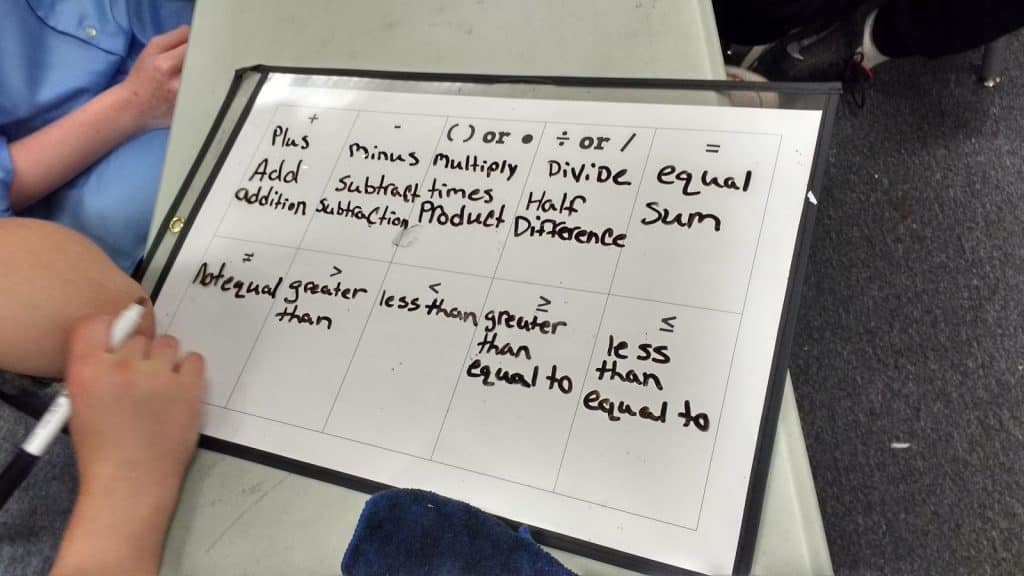 +
Plus
Add
addition
-
minus
Subtract
Subtraction
( ) or •
multiply
times
Product
÷ or /
DiviDe
Half
Difference
=
equal
Sum
≠
Not equal
>
greater
than
<
less than
≥
greater
than
equal to
≤
less
than
equal to